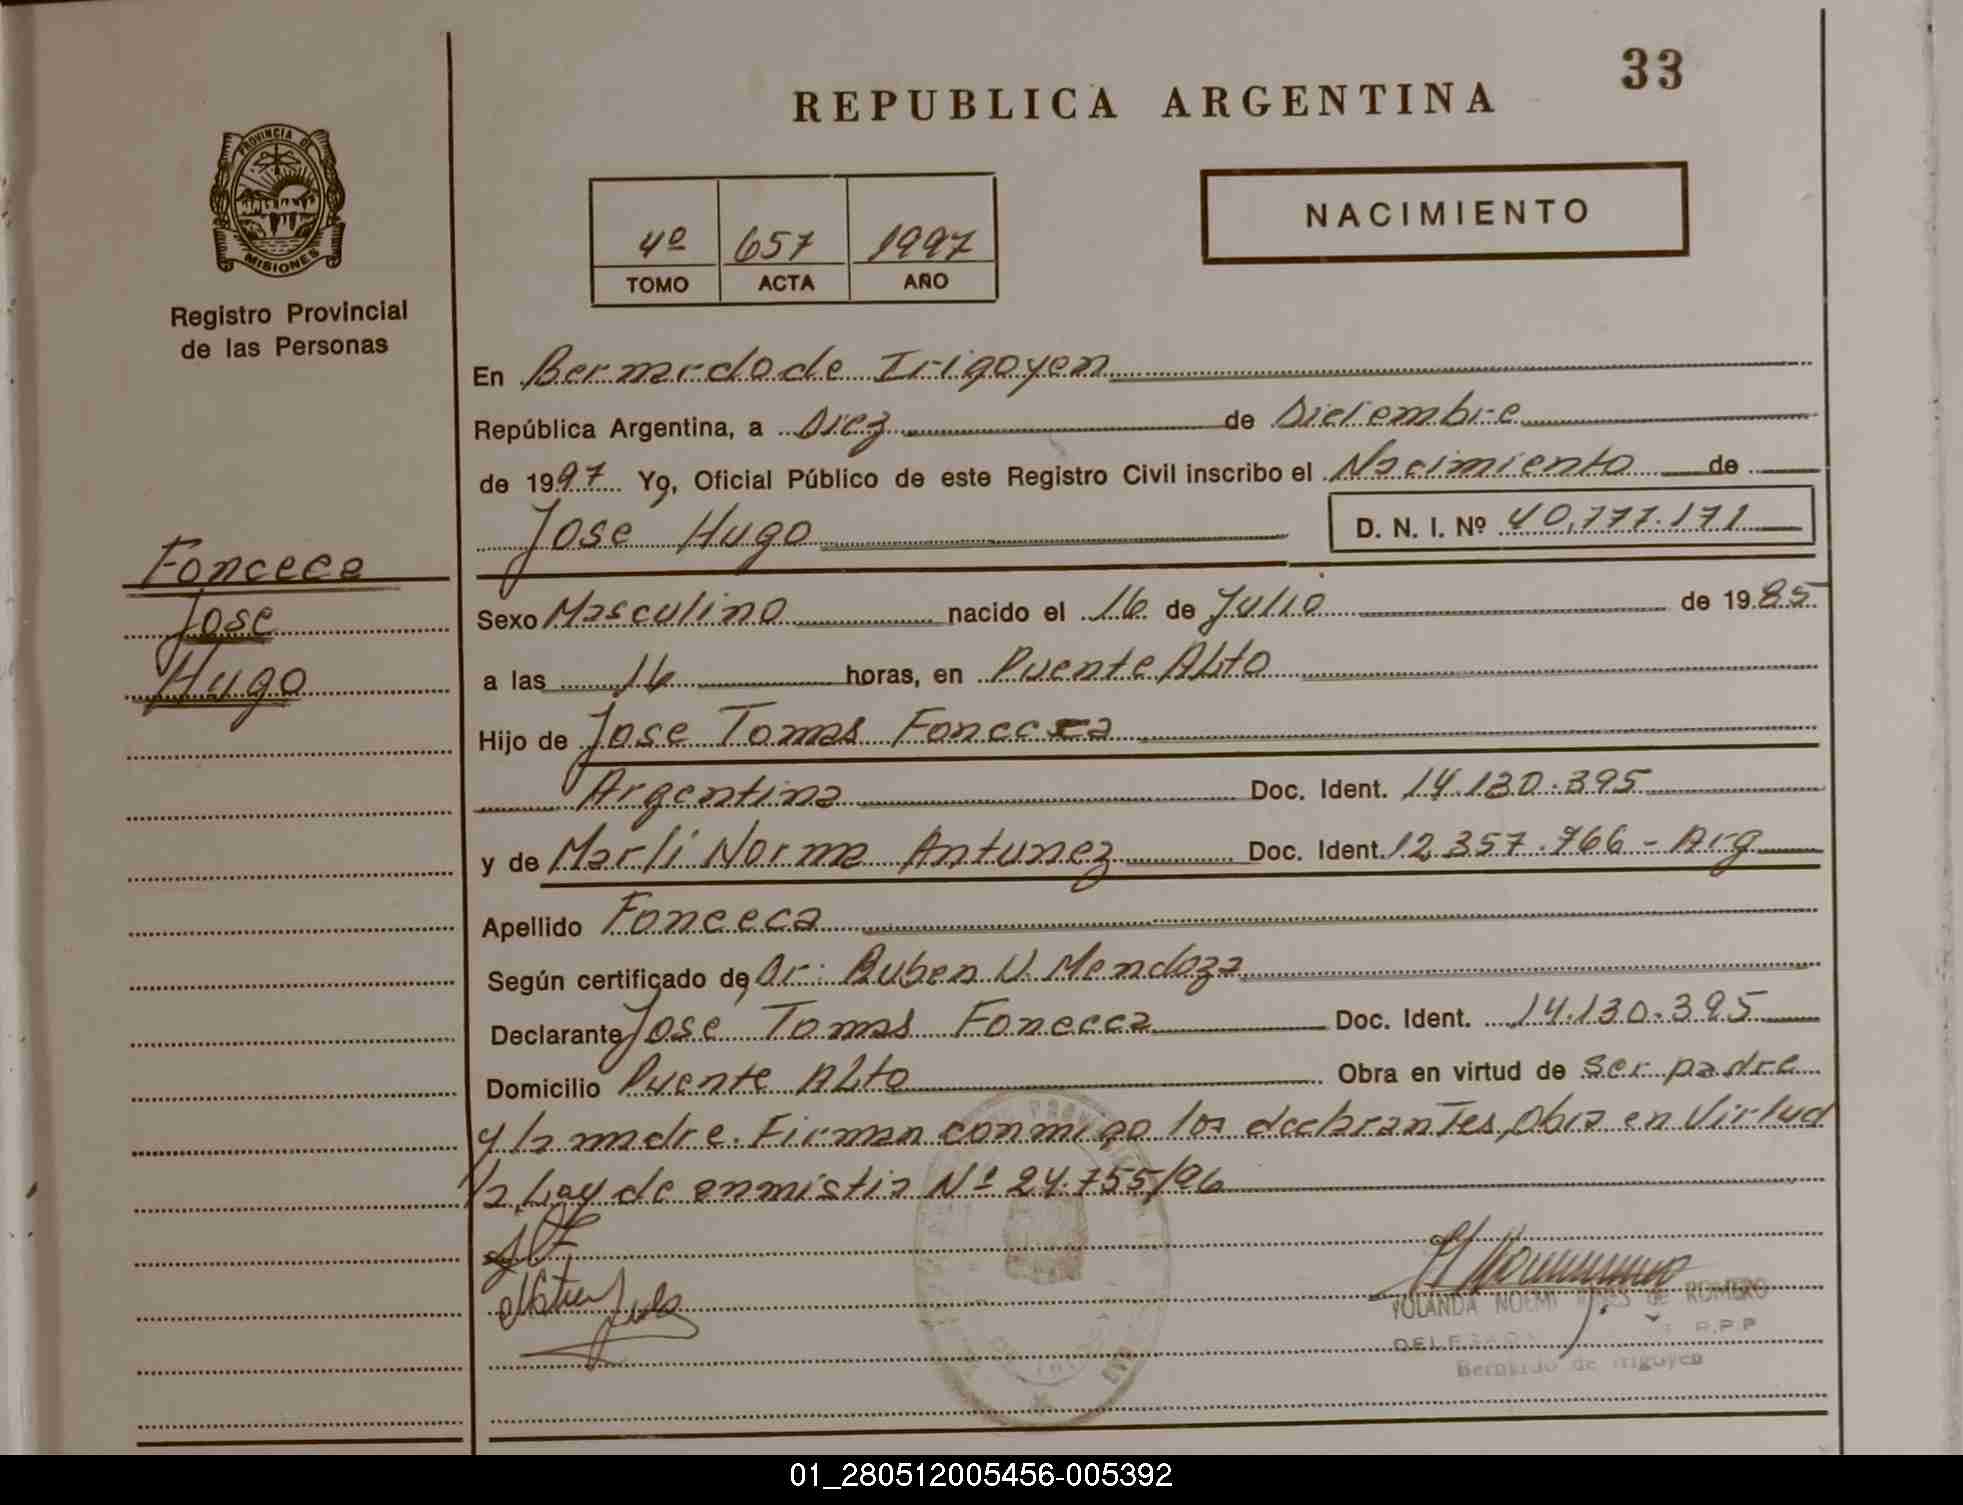 33
REPUBLICA ARGENTINA
PROVINCIA DE
MISIONES
Registro Provincial
de las Personas
4º 657 1997
TOMO ACTA AÑO
NACIMIENTO
En Bernardo de Irigoyen
República Argentina, a Diez de Diciembre
de 1997 Yo, Oficial Público de este Registro Civil inscribo el Nacimiento de
Jose Hugo D. N. I. Nº 40.777.171
Fonceca
Jose
Hugo
Sexo Masculino nacido el 16 de Julio de 1985
a las 16 horas, en Puente Alto
Hijo de Jose Tomas Fonceca
Argentina Doc. Ident. 14.130.395
y de Marli Norma Antunez Doc. Ident. 12.357.966 - Arg
Apellido Fonceca
Según certificado de Dr: Ruben N. Mendoza
Declarante Jose Tomas Fonceca Doc. Ident. 14.130.395
Domicilio Puente Alto Obra en virtud de ser padre
y la madre. Firman conmigo los declarantes, Obra en Virtud
la Ley de anmistia Nº 24.755/96
YOLANDA NOEMI DE ROMERO
R.P.P
Bernardo de Irigoyen
01_280512005456-005392